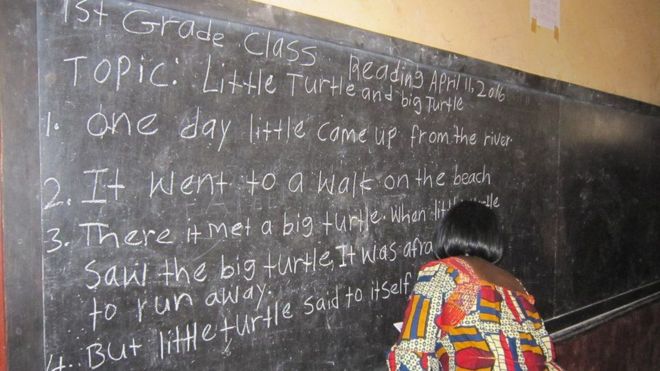 1st Grade Class Reading April 11, 2016
Topic: Little Turtle and big Turtle
1. one day little come up from the river.
2. It went to a walk on the beach
3. There it met a big turtle. When
saw the big turtle, It was
to run away.
4. But little turtle said to itself